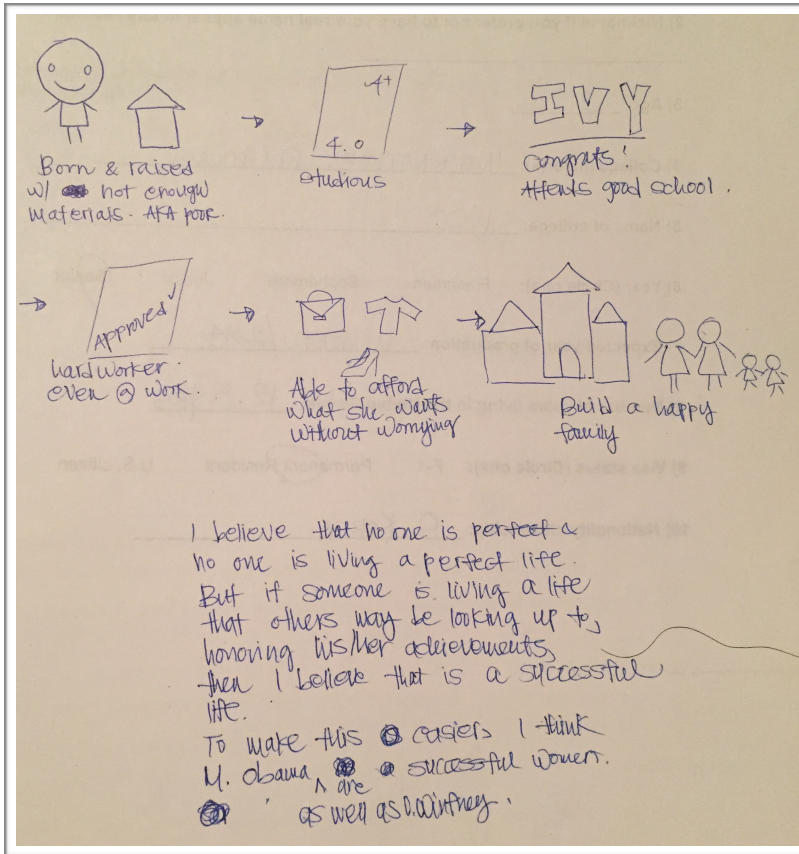 A+
4.0
IVY
Born & raised
w/ not enough
materials. AKA poor.
studious
Congrats!
Attends good school.
Approved ✓
hardworker
even @ work.
Able to afford
what she wants
without worrying
Build a happy
family
I believe that no one is perfect &
no one is living a perfect life.
But if someone is living a life
that others may be looking up to,
honoring his/her achievements,
then I believe that is a successful
life.
To make this easier, I think
M. Obama are successful women.
as well as O. Winfrey.